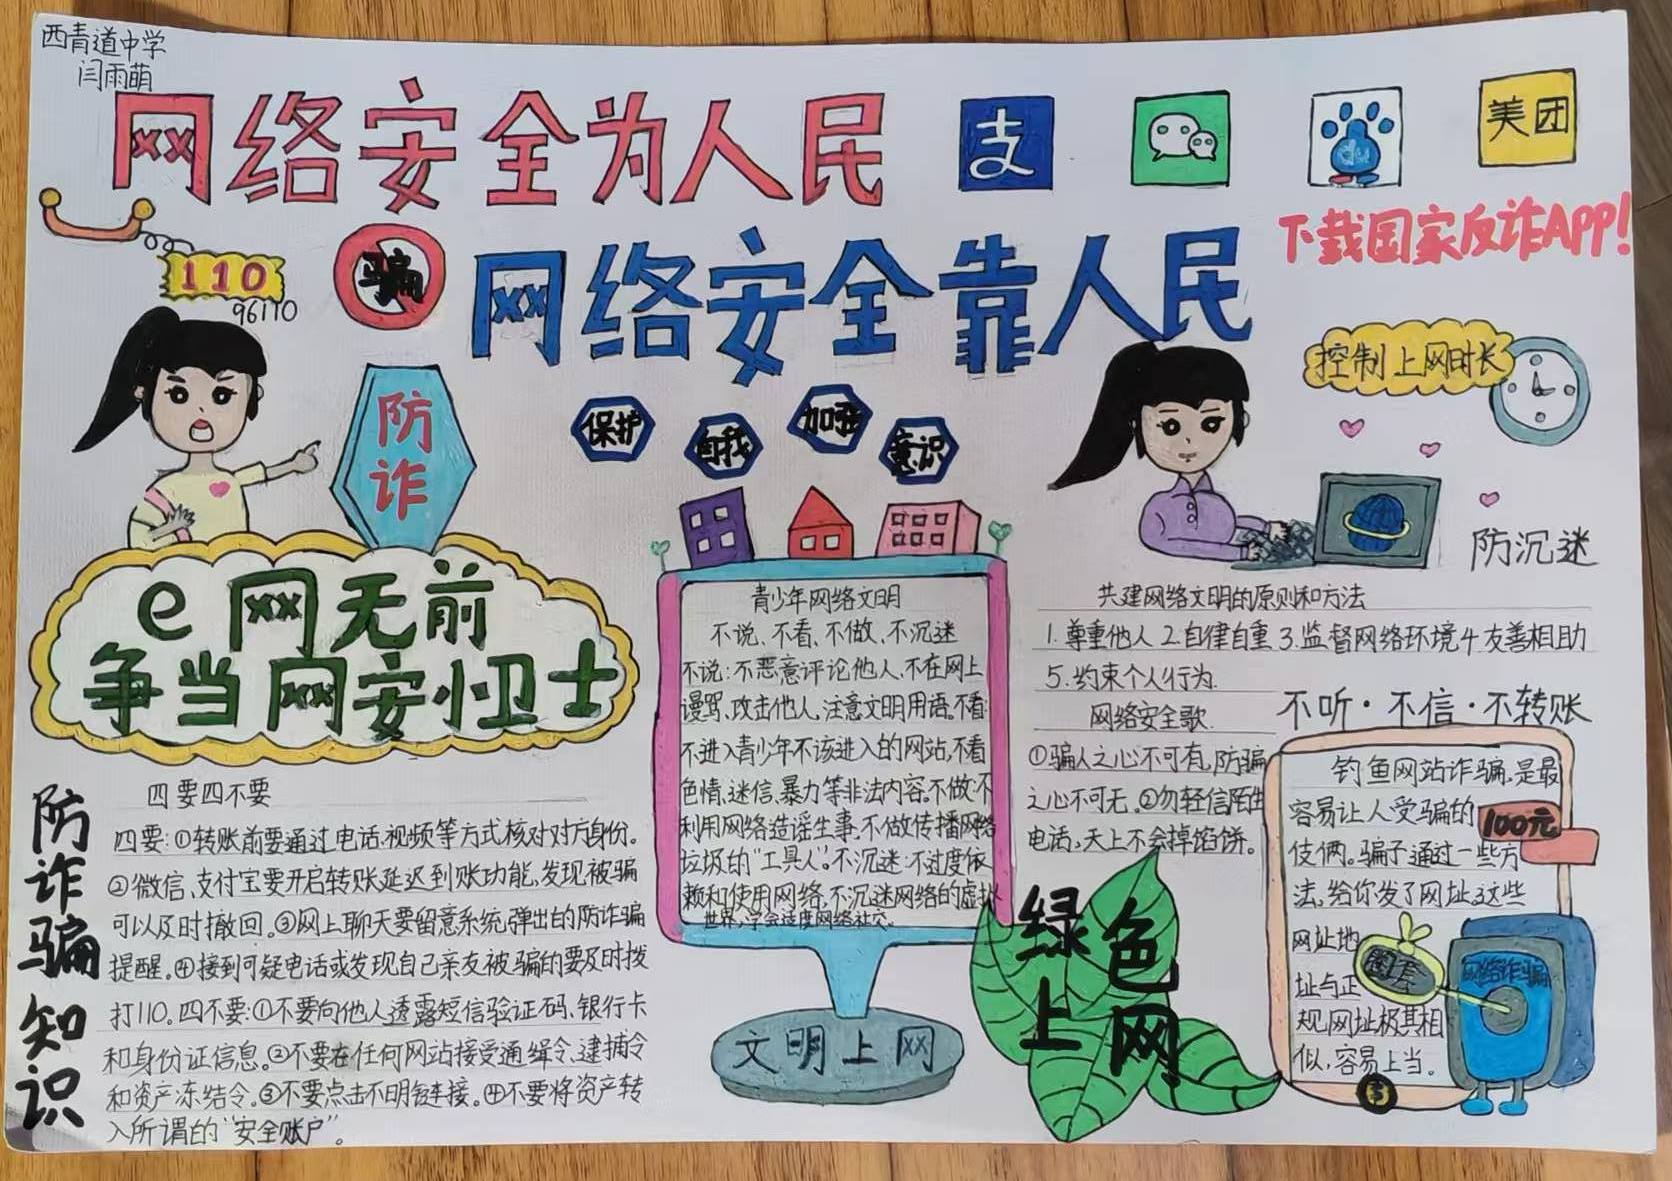 西青道中学
闫雨萌
网络安全为人民
支
du
美团
下载国家反诈APP!
110
96110
骗
网络安全靠人民
控制上网时长
防诈
保护
自我
加强
意识
防沉迷
e网无前
争当网安小卫士
防诈骗知识
四要四不要
四要:①转账前要通过电话.视频等方式核对对方身份。
②微信、支付宝要开启转账延迟到账功能,发现被骗
可以及时撤回。③网上聊天要留意系统弹出的防诈骗
提醒。④接到可疑电话或发现自己亲友被骗的要及时拨
打110。四不要:①不要向他人透露短信验证码、银行卡
和身份证信息。②不要在任何网站接受通缉令、逮捕令
和资产冻结令。③不要点击不明链接。④不要将资产转
入所谓的“安全账户”。
青少年网络文明
不说、不看、不做、不沉迷
不说:不恶意评论他人,不在网上
谩骂,攻击他人,注意文明用语。不看:
不进入青少年不该进入的网站,不看
色情、迷信、暴力等非法内容。不做:不
利用网络造谣生事,不做传播网络
垃圾的“工具人”。不沉迷:不过度依
赖和使用网络,不沉迷网络的虚拟
世界,学会适度网络社交。
文明上网
共建网络文明的原则和方法
1.尊重他人 2.自律自重 3.监督网络环境 4.友善相助
5.约束个人行为.
网络安全歌.
①骗人之心不可有,防骗
之心不可无。②勿轻信陌生
电话,天上不会掉馅饼。
绿色上网
不听·不信·不转账
钓鱼网站诈骗,是最
容易让人受骗的
100元
伎俩。骗子通过一些方
法,给你发了网址,这些
网址地
址与正
规网址极其相
似,容易上当。
圈套
网络诈骗